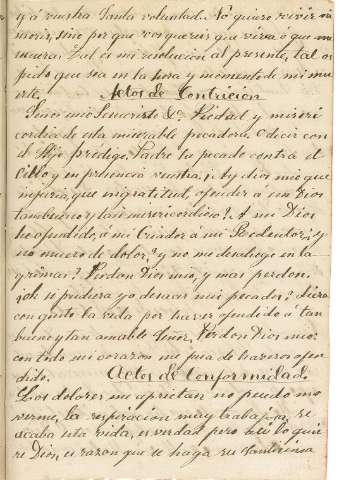 y á vuestra Santa voluntad. No quiero vivir ni
morir, sino por que vos querais que viva ó que
muera. Tal es mi resolucion al presente, tal os
pido que sea en la hora y momento de mi mu
erte. Actos de Contricion
Señor mio Jesucristo &c. Piedad y miseri
cordia de esta miserable pecadora. O decir con
el Hijo prodigo, Padre he pecado contra el
Cielo y en presencia vuestra, ¡Ay dios mio que
injuria, que ingratitud, ofender á un Dios
tan bueno y tan misericordioso! A mi Dios
he ofendido, á mi Criador á mi Redentor, ¿y
no muero de dolor,? y no me desahogo en la
grimas? Perdon Dios mio, y mas perdon.
¡oh si pudiera yo desacer mis pecados,! diera
con gusto la vida por haver ofendido á tan
bueno y tan amable Señor. Perdon Dios mio:
con todo mi corazon me pesa de haveros ofen
dido. Actos de Conformidad
Los dolores me aprietan no puedo mo
verme, la respiracion muy trabajosa, se
acaba esta vida, es verdad pero si lo quie
re Dios, es razon que se haga su Santisima